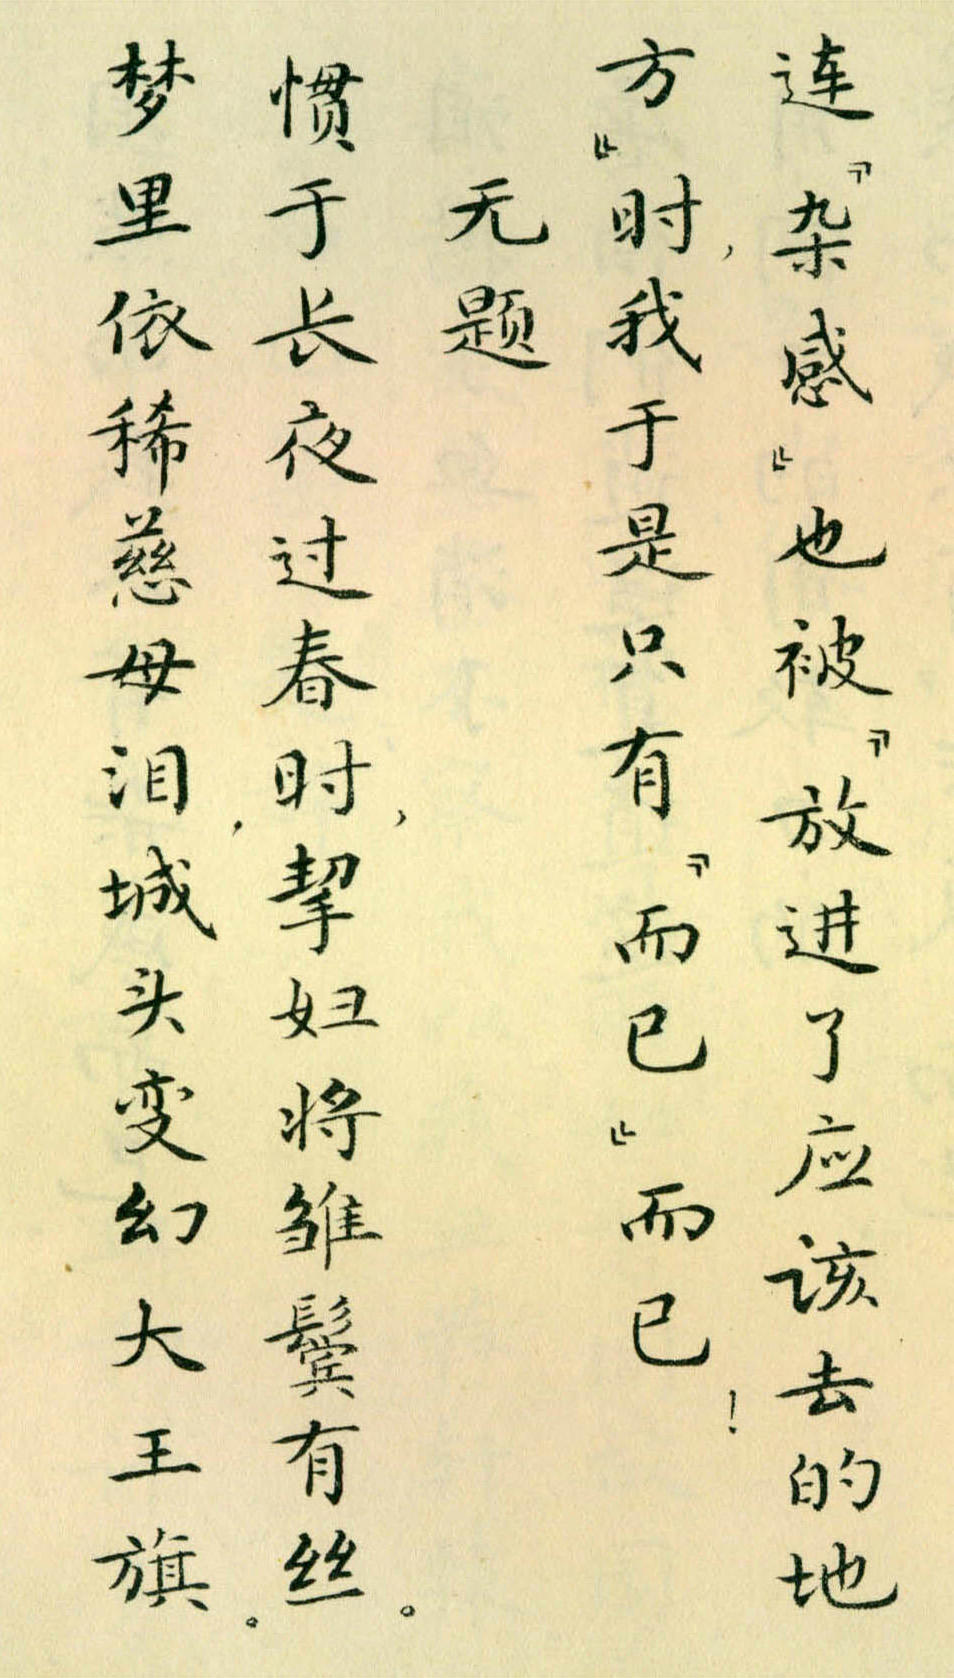 连『杂感』也被『放进了应该去的地
方』时，我于是只有『而已』而已！
无题
惯于长夜过春时，挈妇将雏鬓有丝。
梦里依稀慈母泪，城头变幻大王旗。